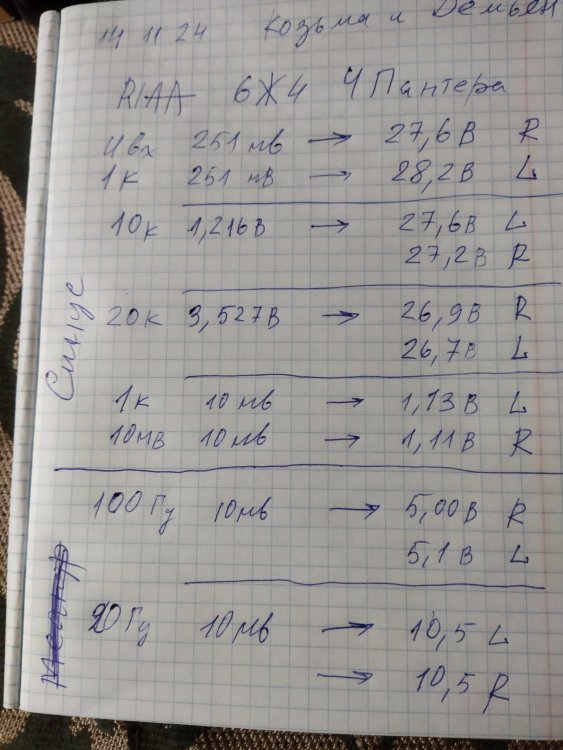 14 11 24 Козьма и Демьян
RIAA 6Ж4 4 Пантера
Uвх 251 мв → 27,6 В R
1к 251 мв → 28,2 В L
10к 1,216 В → 27,6 В L
27,2 В R
Синус
20к 3,527 В → 26,9 В R
26,7 В L
1к 10 мв → 1,13 В L
10мв 10 мв → 1,11 В R
100 Гц 10мв → 5,00 В R
5,1 В L
20 Гц 10 мв → 10,5 L
→ 10,5 R